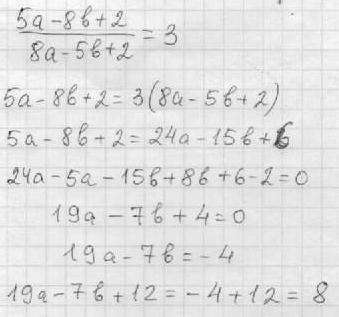 (5a-8b+2)/(8a-5b+2) = 3
5a-8b+2=3(8a-5b+2)
5a-8b+2=24a-15b+6
24a-5a-15b+8b+6-2=0
19a-7b+4=0
19a-7b=-4
19a-7b+12=-4+12=8